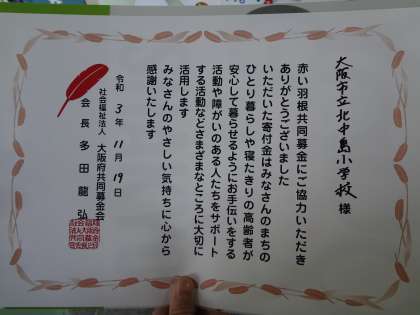 大阪市立北中島小学校 様
赤い羽根共同募金にご協力いただき
ありがとうございました
いただいた寄付金はみなさんのまちの
ひとり暮らしや寝たきりの高齢者が
安心して暮らせるようにお手伝いをする
活動や障がいのある人たちをサポート
する活動などさまざまなところに大切に
活用します
みなさんのやさしい気持ちに心から
感謝いたします
令和3年11月19日
社会福祉法人 大阪府共同募金会
会長 多田龍弘